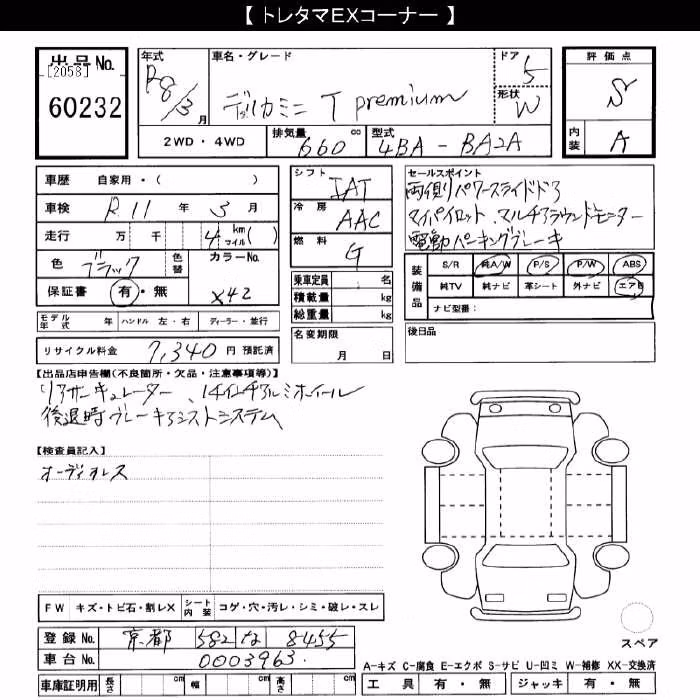 【 トレタマEXコーナー 】
出品No.
[2058]
60232
年式
R8/3月
車名・グレード
デリカミニ T premium
ドア
5
形状
W
評価点
S
内装
A
2WD・4WD
排気量
660 cc
型式
4BA - BA2A
車歴 自家用・( )
車検 R11年 3月
走行 万 千 4 km マイル( )
色 ブラック 色替 カラーNo.
X42
保証書 有・無
モデル年式 年 ハンドル 左・右 ディーラー・並行
リサイクル料金 7,340 円 預託済
シフト IAT
冷房 AAC
燃料 G
乗車定員 名
積載量 kg
総重量 kg
名変期限
月 日
セールスポイント
両側パワースライドドア
マイパイロット、マルチアラウンドモニター
電動パーキングブレーキ
装備品
S/R 純A/W P/S P/W ABS
純TV 純ナビ 革シート 外ナビ エアB
ナビ型番:
後日品
【出品店申告欄(不良箇所・欠品・注意事項等)】
リアサーキュレーター、14インチアルミホイール
後退時ブレーキアシストシステム
【検査員記入】
オーディオレス
FW キズ・トビ石・割レX シート内装 コゲ・穴・汚レ・シミ・破レ・スレ
登録No. 京都 582 な 8455
車台No. 0003963
車庫証明用 長さ cm 幅 cm 高さ cm
スペア
A-キズ C-腐食 E-エクボ S-サビ U-凹ミ W-補修 XX-交換済
工具 有・無 ジャッキ 有・無